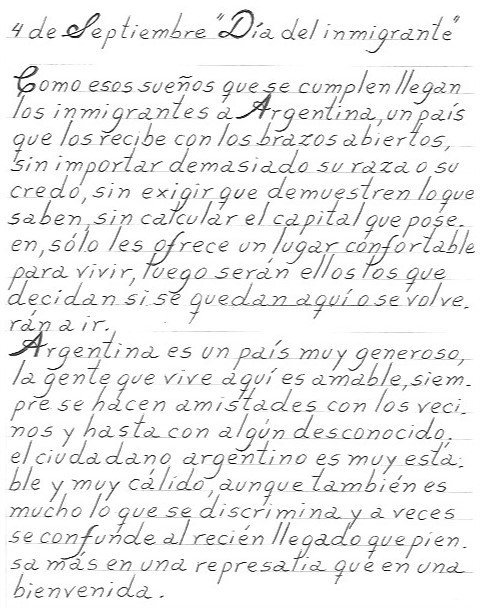 4 de Septiembre "Día del inmigrante"
Como esos sueños que se cumplen llegan
los inmigrantes a Argentina, un país
que los recibe con los brazos abiertos,
sin importar demasiado su raza o su
credo, sin exigir que demuestren lo que
saben, sin calcular el capital que pose-
en, sólo les ofrece un lugar confortable
para vivir, luego serán ellos los que
decidan si se quedan aquí o se volve-
rán a ir.
Argentina es un país muy generoso,
la gente que vive aquí es amable, siem-
pre se hacen amistades con los veci-
nos y hasta con algún desconocido;
el ciudadano argentino es muy está-
ble y muy cálido, aunque también es
mucho lo que se discrimina y a veces
se confunde al recién llegado que pien-
sa más en una represalia que en una
bienvenida.